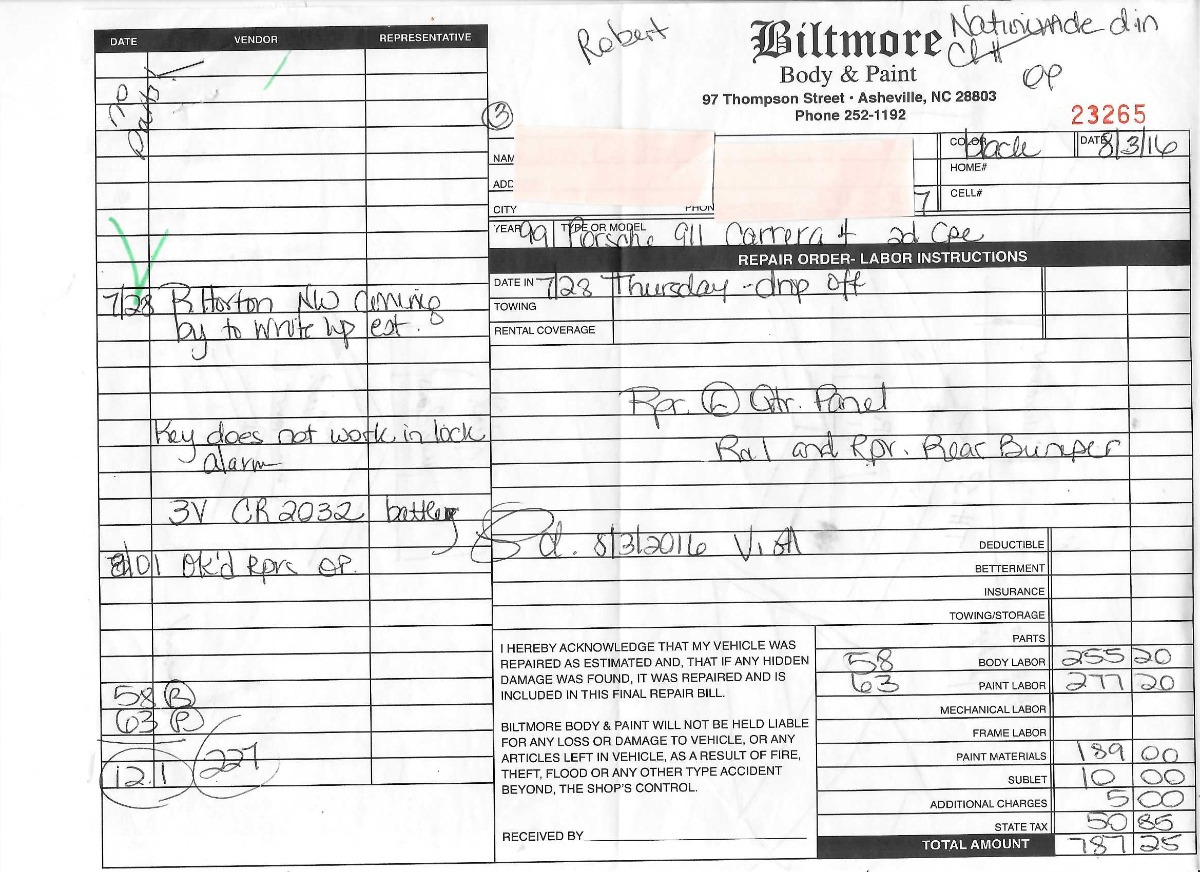 Robert
Biltmore
Body & Paint
97 Thompson Street • Asheville, NC 28803
Phone 252-1192
Nationwide
Cl#
OP
23265
DATE VENDOR REPRESENTATIVE
no parts!
3
COLOR black DATE 8/3/16
NAM
HOME#
ADD
CELL#
CITY PHON 7
YEAR 99 TYPE OR MODEL Porsche 911 Carrera 4 2d Cpe
REPAIR ORDER- LABOR INSTRUCTIONS
DATE IN 7/28 Thursday - drop off
TOWING
RENTAL COVERAGE
7/28 R Horton NW coming
by to write up est.
Rpr. L Qtr. Panel
R&I and Rpr. Rear Bumper
Key does not work in lock
alarm
3V CR2032 battery
Pd. 8/3/2016 VISA
8/01 OK'd Rprs OP.
DEDUCTIBLE
BETTERMENT
INSURANCE
TOWING/STORAGE
PARTS
58 BODY LABOR 255 20
63 PAINT LABOR 277 20
MECHANICAL LABOR
FRAME LABOR
PAINT MATERIALS 189 00
SUBLET 10 00
ADDITIONAL CHARGES 5 00
STATE TAX 50 85
TOTAL AMOUNT 787 25
58 B
63 P
12.1 227
I HEREBY ACKNOWLEDGE THAT MY VEHICLE WAS
REPAIRED AS ESTIMATED AND, THAT IF ANY HIDDEN
DAMAGE WAS FOUND, IT WAS REPAIRED AND IS
INCLUDED IN THIS FINAL REPAIR BILL.
BILTMORE BODY & PAINT WILL NOT BE HELD LIABLE
FOR ANY LOSS OR DAMAGE TO VEHICLE, OR ANY
ARTICLES LEFT IN VEHICLE, AS A RESULT OF FIRE,
THEFT, FLOOD OR ANY OTHER TYPE ACCIDENT
BEYOND, THE SHOP'S CONTROL.
RECEIVED BY